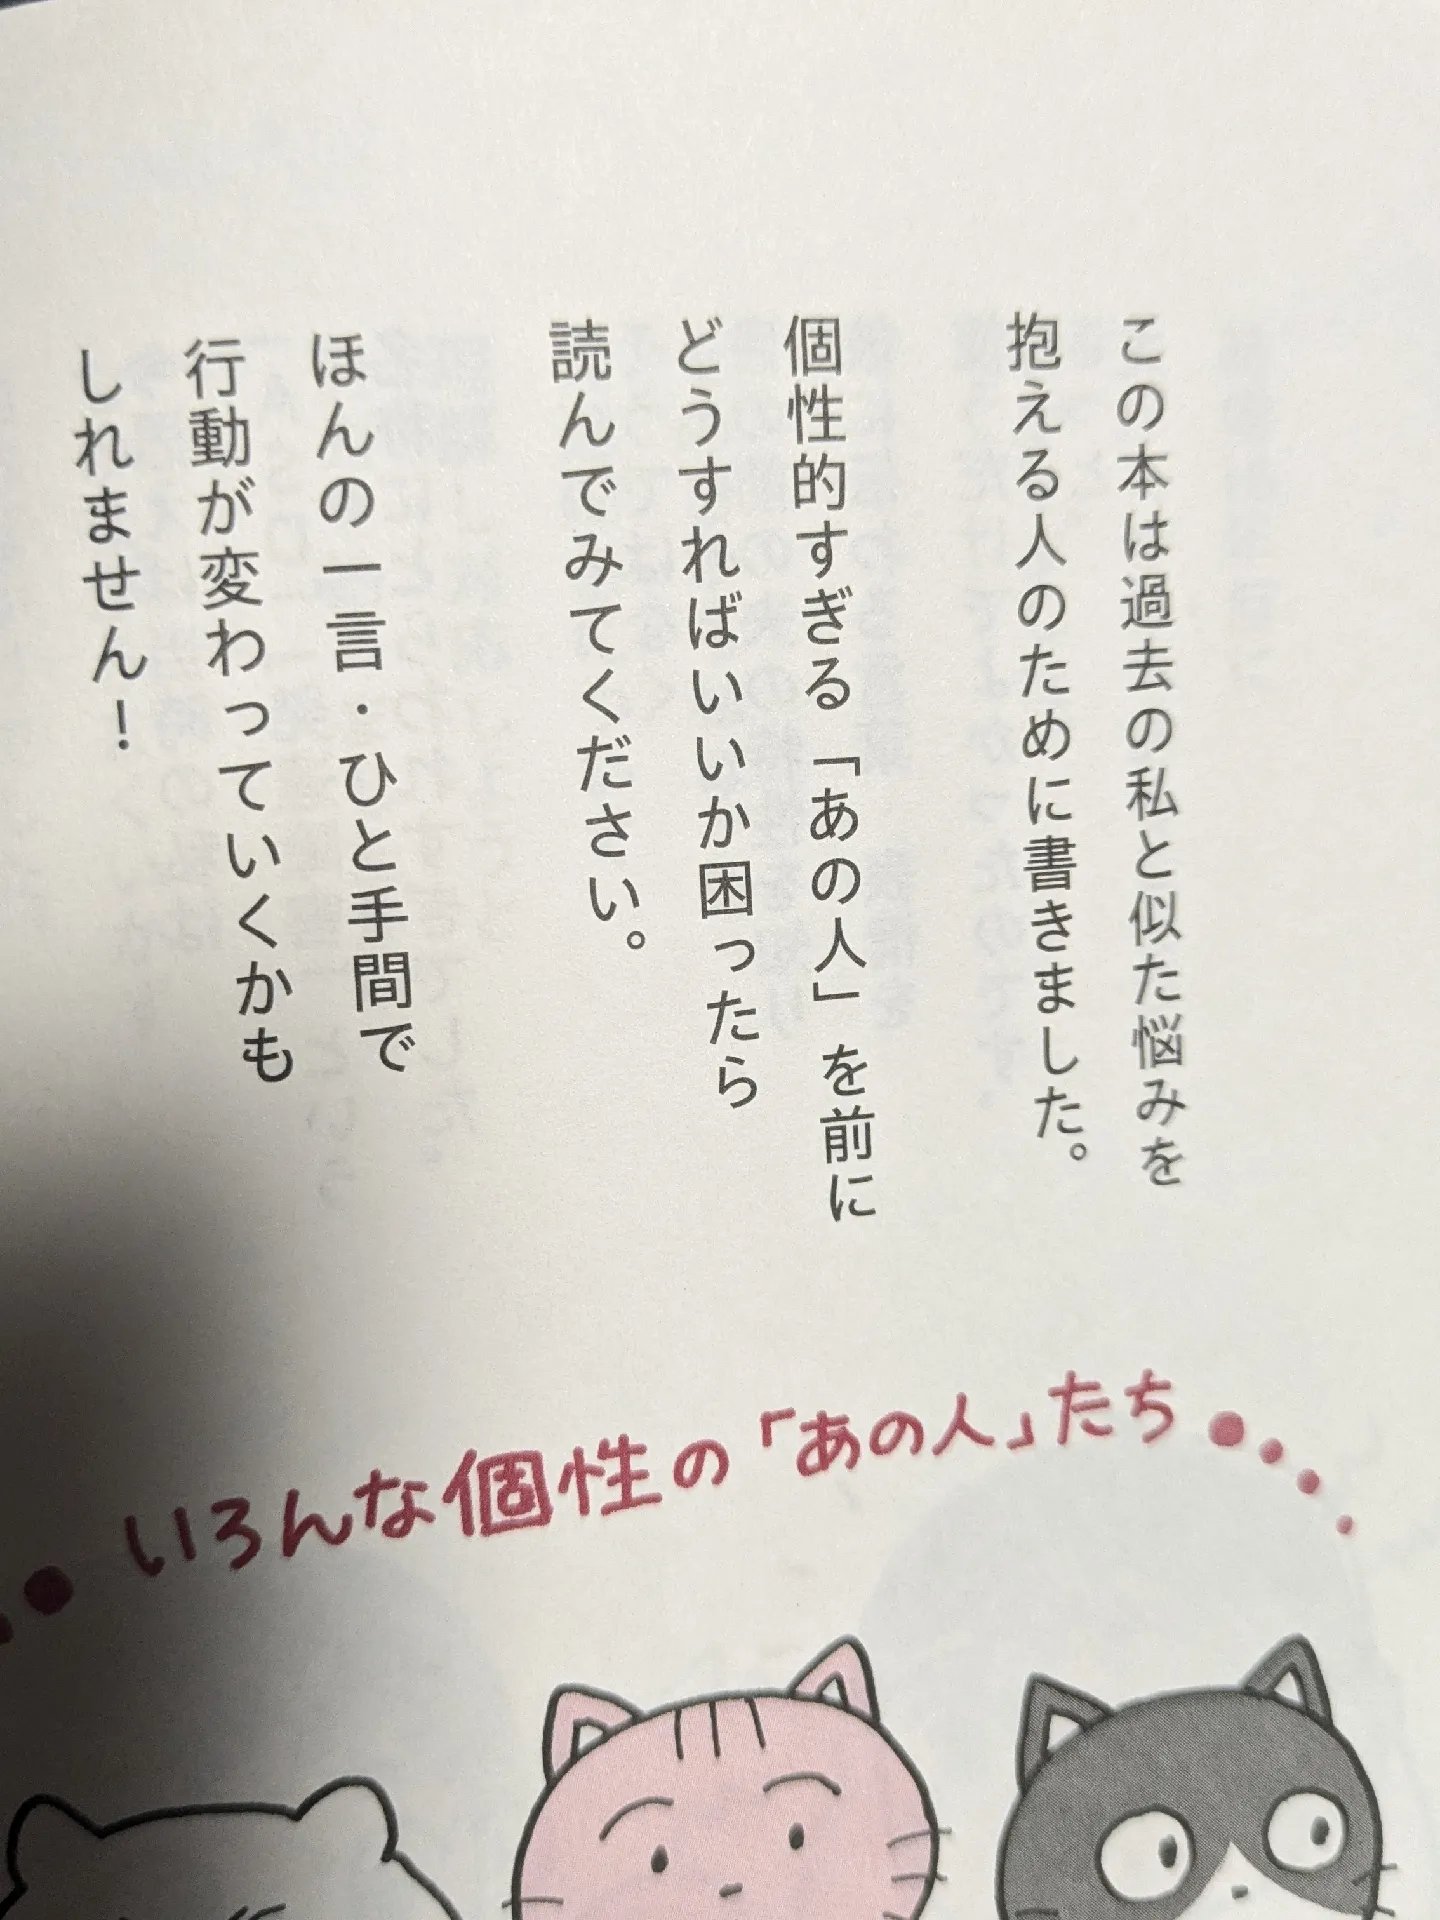 この本は過去の私と似た悩みを
抱える人のために書きました。
個性的すぎる「あの人」を前に
どうすればいいか困ったら
読んでみてください。
ほんの一言・ひと手間で
行動が変わっていくかも
しれません！
いろんな個性の「あの人」たち